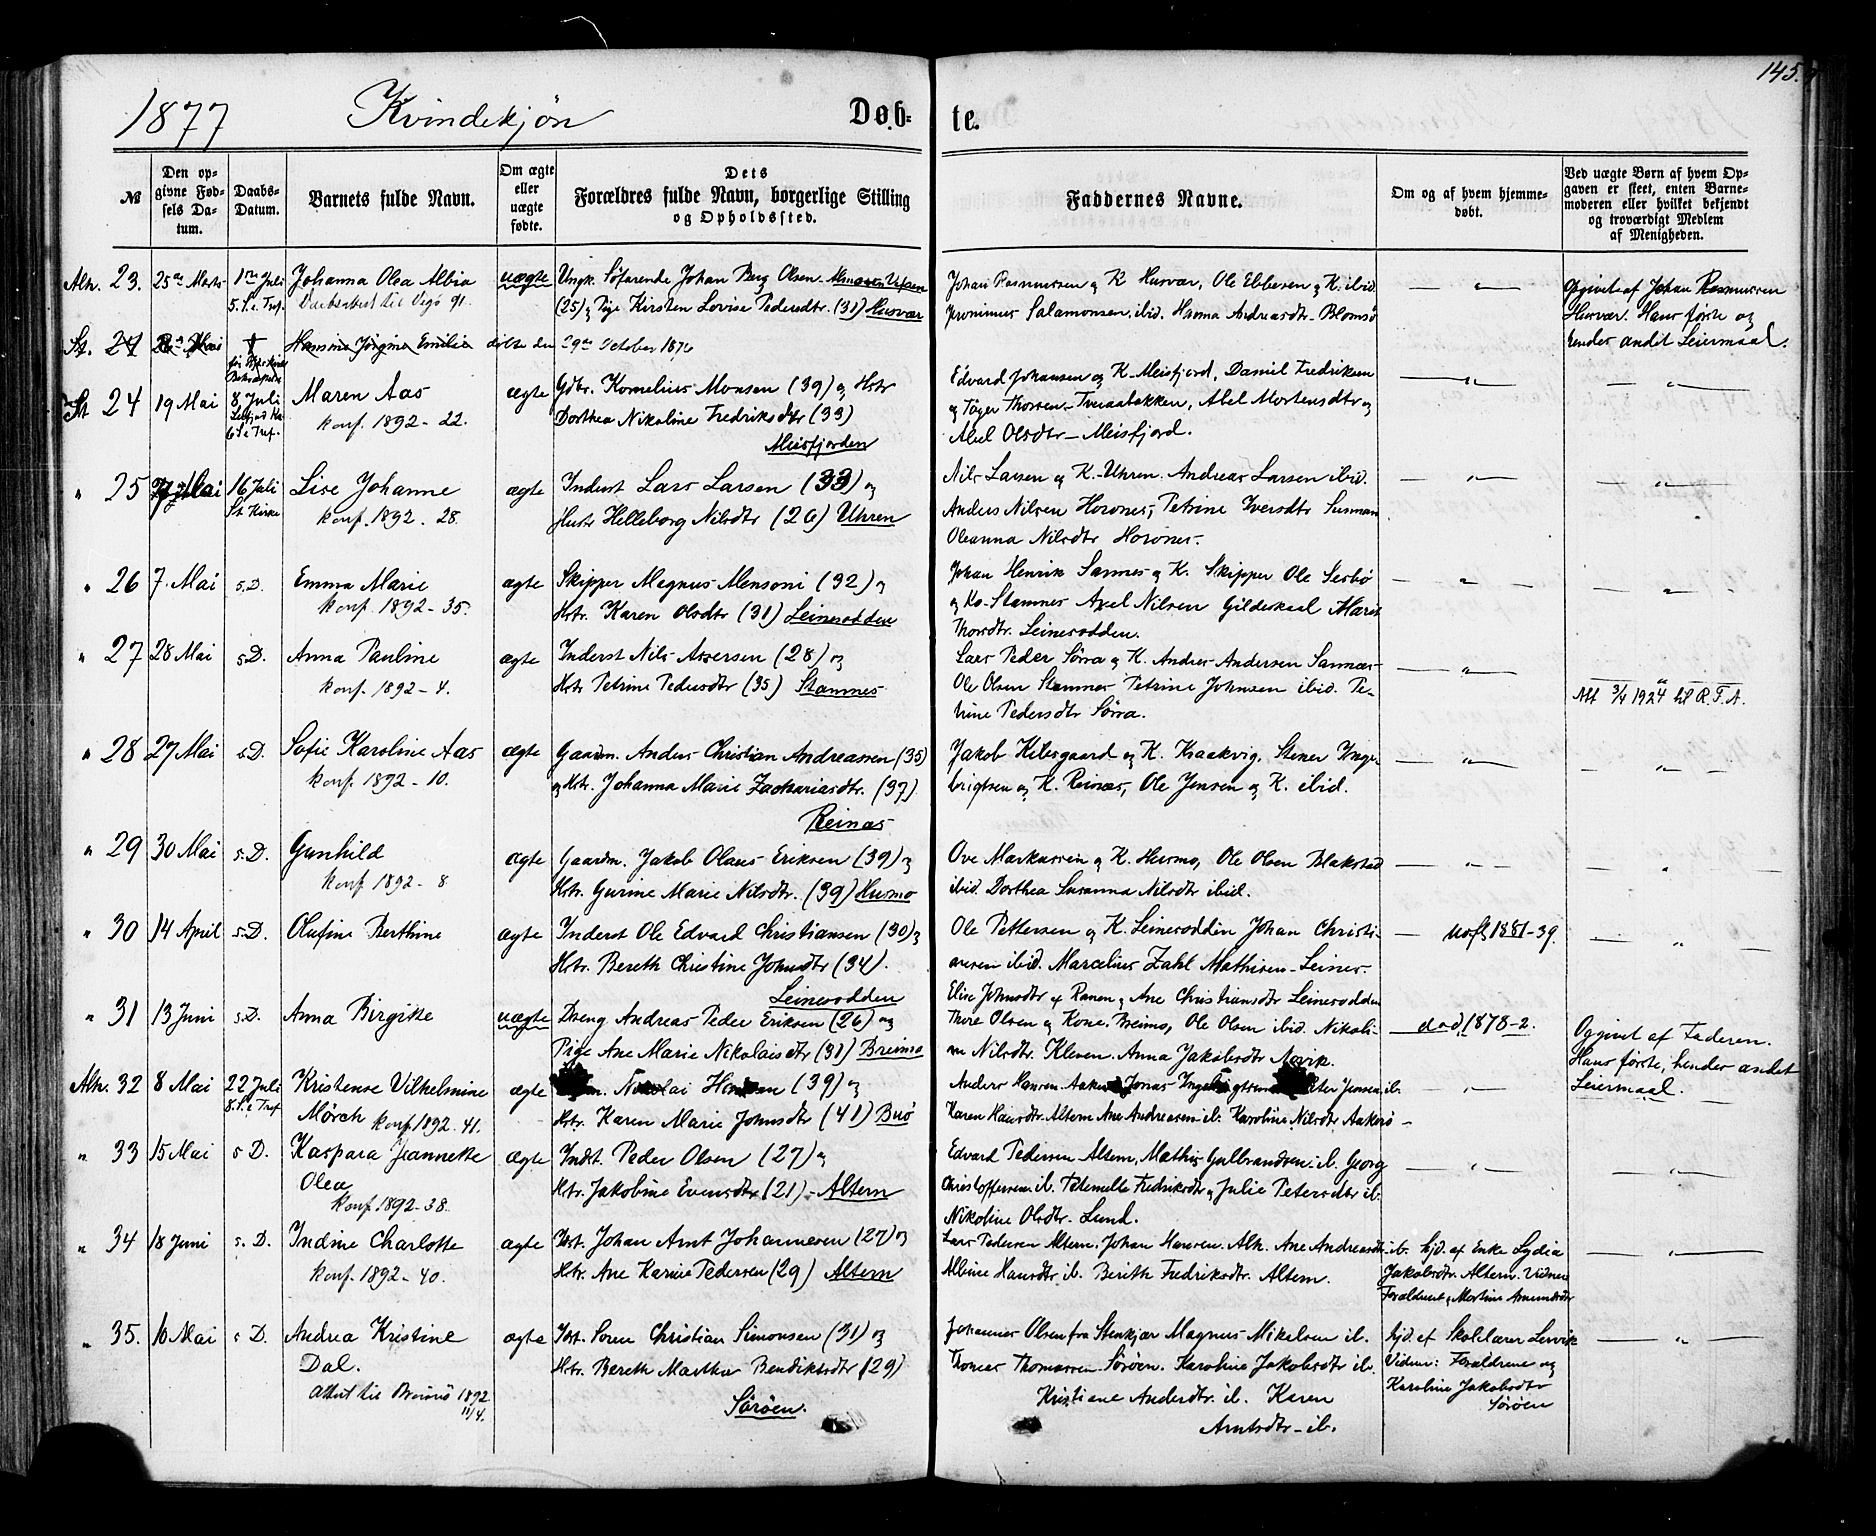 145.
1877 Kvindekjøn Døb- te.
№
Den opgivne Fødsels Datum.
Daabs-Datum.
Barnets fulde Navn.
Om ægte eller uægte fødte.
Dets Forældres fulde Navn, borgerlige Stilling og Opholdssted.
Faddernes Navne.
Om og af hvem hjemmedøbt.
Ved uægte Børn af hvem Opgaven er skeet, enten Barnemoderen eller hvilket bekjendt og troværdigt Medlem af Menigheden.
Alh. 23. 25de Marts 1ste Juli Johanna Olea Albia uægte Ungk. Søfarende Johan Berg Olsen
5. S. e. Tref. (25) og Pige Kirsten Lovise Pedersdtr. (31) Husvær
Johan Rasmussen og K. Husvær, Ole Ebbesen og K. ibid.
Jeronimus Salamonsen ibid. Hanna Andreasdtr. Blomsø
Opgivet af Johan Rasmussen
Husvær. Hans første og
hendes andet Leiermaal.
St. 24 Mai Hansine Jørgine Emilie døbte den 29de October 1876
St 24 19 Mai 8 Juli Maren Aas ægte Gdbr. Kornelius Monsen (39) og Hstr
6 S. e. Tref. konf. 1892 - 22. Dorthea Nikoline Fredriksdtr (33)
Meisfjorden
Edvard Johansen og K. Meisfjord, Daniel Fredriksen
og Tøger Thorsen Tveraabakken, Abel Mortensdtr og
Abel Olsdtr - Meisfjord.
" 25 Mai 16 Juli Lise Johanne ægte Inderst Lars Larsen (33) og
St Kirke konf. 1892. 28. Hustr Helleborg Nilsdtr (26) Uhren
Nils Larsen og K. Uhren. Andreas Larsen ibid.
Anders Nilsen Horsnes, Petrine Iversdtr
Oleanna Nilsdtr Horsnes.
" 26 7. Mai s.D. Emma Marie ægte Skipper Magnus Monsoni (32) og
konf. 1892 - 35. Hstr. Karen Olsdtr (31) Leinesodden
Johan Henrik Sannes og K. Skipper Ole Sesbø
og Ko. Stamnes Axel Nilsen Gildeskaal Marit
Thorsdtr. Leinesodden.
" 27 28 Mai s.D. Anna Pauline ægte Inderst Nils Assersen (28) og
konf. 1892 - 4. Hstr Petrine Pedersdtr (35) Stamnes
Lars Peder Sørra og K. Andres Andersen Sannes
Ole Olsen Stamnes Petrine Johnsen ibid. Petrine Pedersdtr Sørra.
Att 3/4 1924 til R.T.A.
" 28 27 Mai s.D. Sofie Karoline Aas ægte Gaardm. Anders Christian Andreassen (35)
konf. 1892 - 10. og Hstr. Johanna Marie Zachariasdtr. (37)
Reinæs
Jakob Kilsgaard og K. Kaakvig, Stener Ingebrigtsen og K. Reinæs, Ole Jensen og K. ibid.
" 29 30 Mai s.D. Gunhild ægte Gaardm. Jakob Olaus Eriksen (39) og
konf 1892 - 8 Hstr. Gurine Marie Nilsdtr. (39) Husmo
Ove Markussen og K. Husmo, Ole Olsen Blakstad
ibid. Dorthea Susanna Nilsdtr ibid.
" 30 14 April s.D. Olufine Berthine ægte Inderst Ole Edvard Christiansen (30) og
Hstr. Bereth Christine Johnsdtr (34).
Leinesodden
Ole Pettersen og K. Leinesodden Johan Christiansen ibid. Marcelius Zahl Mathisen - Leines.
Elise Johnsdtr af Ranen og Ane Christiansdtr Leinesodden
1881-39.
" 31 13 Juni s.D. Anna Birgitte uægte Dreng Andreas Peder Eriksen (26) og
Pige Ane Marie Nikolaisdtr (31) Breimo
Thore Olsen og Kone. Breimo, Ole Olsen ibid. Nikoline Nilsdtr. Kleven. Anna Jakobsdtr
død 1878-2.
Opgivet af Faderen.
Hans første, hendes andet
Leiermaal.
Alh. 32 8 Mai 22 Juli Kristense Vilhelmine ægte Nikolai Hansen (39) og
8. S. e Tref Mörch konf. 1892-41. Hstr. Karen Marie Johnsdtr (41) Buø
Anders Hansen Jonas Jensen ib.
Karen Hansdtr. Altern Ane Andreasen ib. Karoline Nilsdtr Aakerø
" 33 15 Mai s D. Kaspara Jeannette ægte Indst. Peder Olsen (27) og
Olea Hstr. Jakobine Evensdtr (21) - Altern
konf 1892-38.
Edvard Pedersen Altern, Mathis Gulbrandsen ib. Georg
Christoffersen ib. Peternelle Fredriksdtr og Julie Petersdtr ib.
Nikoline Olsdtr. Lund.
" 34 18 Juni s. D. Indine Charlotte ægte Idst. Johan Arnt Johannesen (27) og
konf. 1892-40. Hstr. Ane Karine Pedersen (29) Altern
Lars Pedersen Altern. Johan Hansen. Alh. Ane Andreasdtr ib.
Albine Hansdtr ib. Berith Fredriksdtr. Altern.
hjd. af Enke Lydia
Jakobsdtr. Altern. Vidner
Forældrene og Martine Amundsdtr
" 35. 10 Mai s D. Andrea Kristine ægte Idst. Søren Christian Simonsen (31) og
Dal. Hstr. Bereth Marthea Bendiktsdtr (29)
Attest til Brønnø 1892 11/4. Sørøen.
Johannes Olsen fra Stenkjær Magnus Mikelsen ib.
Thomas Thomassen Sørøen. Karoline Jakobsdtr ib.
Kristiane Andersdtr. ib. Karen
Arntsdtr - ib.
hjd. af Skolelærer Lervik
Vidner: Forældrene og
Karoline Jakobsdtr
Sørøen